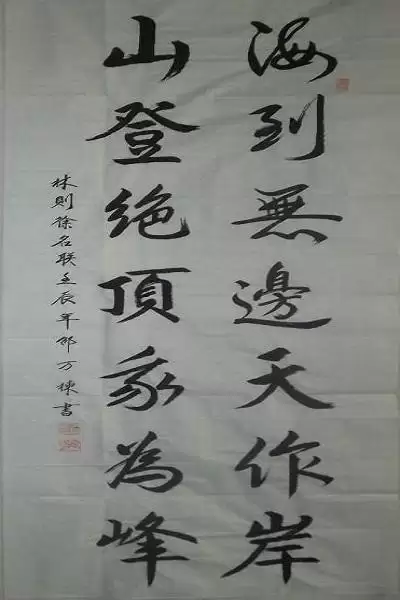 海到無邊天作岸
山登绝頂我為峰
林则徐名联壬辰年邵万栋書